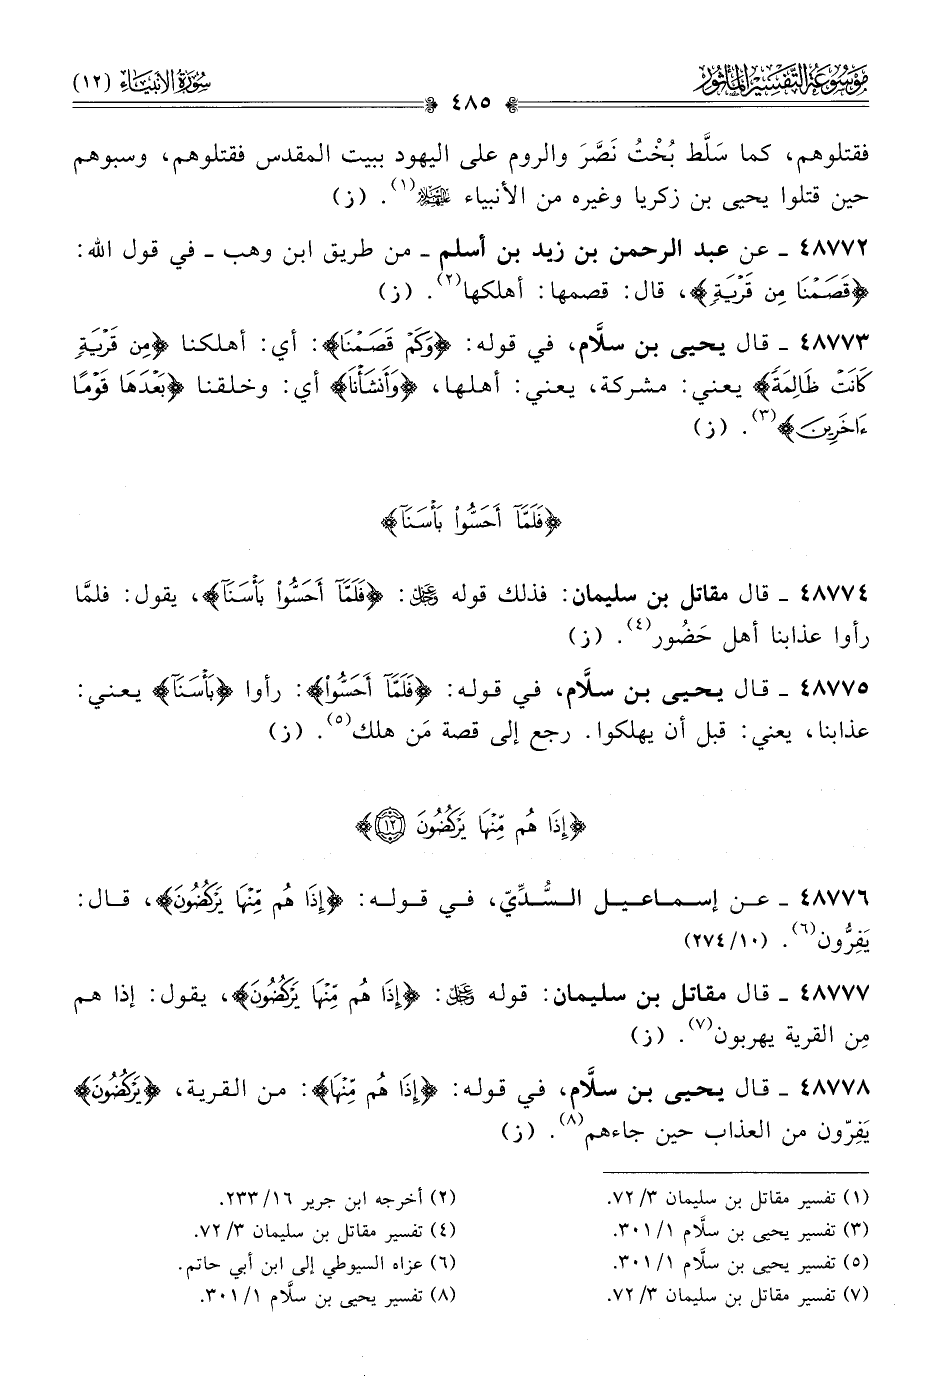 موسوعة التفسير المأثور
سورة الأنبياء (١٢)
٤٨٥
فقتلوهم، كما سَلَّط بُخْتُ نَصَّرَ والروم على اليهود ببيت المقدس فقتلوهم، وسبوهم
حين قتلوا يحيى بن زكريا وغيره من الأنبياء عليهم السلام(١). (ز)
٤٨٧٧٢ ـ عن عبد الرحمن بن زيد بن أسلم ـ من طريق ابن وهب ـ في قول الله:
﴿قَصَمْنَا مِن قَرْيَةٍ﴾، قال: قصمها: أهلكها(٢). (ز)
٤٨٧٧٣ ـ قال يحيى بن سلَّام، في قوله: ﴿وَكَمْ قَصَمْنَا﴾: أي: أهلكنا ﴿مِن قَرْيَةٍ
كَانَتْ ظَالِمَةً﴾ يعني: مشركة، يعني: أهلها، ﴿وَأَنشَأْنَا﴾ أي: وخلقنا ﴿بَعْدَهَا قَوْمًا
ءَاخَرِينَ﴾(٣). (ز)
﴿فَلَمَّآ أَحَسُّوا۟ بَأْسَنَآ﴾
٤٨٧٧٤ ـ قال مقاتل بن سليمان: فذلك قوله عز وجل: ﴿فَلَمَّآ أَحَسُّوا۟ بَأْسَنَآ﴾، يقول: فلمَّا
رأوا عذابنا أهل حَضُور(٤). (ز)
٤٨٧٧٥ ـ قال يحيى بن سلَّام، في قوله: ﴿فَلَمَّآ أَحَسُّوا۟﴾: رأوا ﴿بَأْسَنَآ﴾ يعني:
عذابنا، يعني: قبل أن يهلكوا. رجع إلى قصة مَن هلك(٥). (ز)
﴿إِذَا هُم مِّنْهَا يَرْكُضُونَ ١٢﴾
٤٨٧٧٦ ـ عن إسماعيل السُّدِّيّ، في قوله: ﴿إِذَا هُم مِّنْهَا يَرْكُضُونَ﴾، قال:
يَفِرُّون(٦). (١٠/ ٢٧٤)
٤٨٧٧٧ ـ قال مقاتل بن سليمان: قوله عز وجل: ﴿إِذَا هُم مِّنْهَا يَرْكُضُونَ﴾، يقول: إذا هم
مِن القرية يهربون(٧). (ز)
٤٨٧٧٨ ـ قال يحيى بن سلَّام، في قوله: ﴿إِذَا هُم مِّنْهَا﴾: من القرية، ﴿يَرْكُضُونَ﴾
يَفِرّون من العذاب حين جاءهم(٨). (ز)
(١) تفسير مقاتل بن سليمان ٣/ ٧٢.
(٢) أخرجه ابن جرير ١٦/ ٢٣٣.
(٣) تفسير يحيى بن سلَّام ١/ ٣٠١.
(٤) تفسير مقاتل بن سليمان ٣/ ٧٢.
(٥) تفسير يحيى بن سلَّام ١/ ٣٠١.
(٦) عزاه السيوطي إلى ابن أبي حاتم.
(٧) تفسير مقاتل بن سليمان ٣/ ٧٢.
(٨) تفسير يحيى بن سلَّام ١/ ٣٠١.